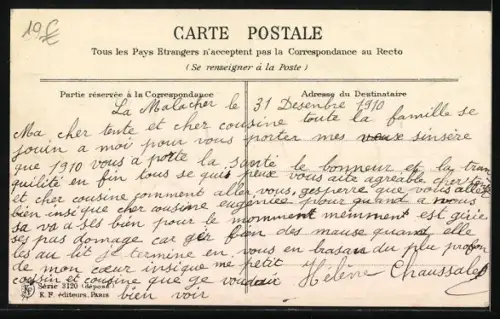 19 €
CARTE POSTALE
Tous les Pays Etrangers n'acceptent pas la Correspondance au Recto
(Se renseigner à la Poste)
Partie réservée à la Correspondance
Adresse du Destinataire
La Malacher le 31 Desenbre 1910
Ma cher tente et cher cousine toute la famille se
jouin a moi pour vous porter mes veux sinsère
que 1910 vous a porte la santé le bonneur et la tran
quilité en fin tous se qui peux vous aite agréable cher
et cher cousine comment aller vous, gesperre que vous allez
bien insique cher cousine eugénie pour quand a nous
sa va a ses bien pour le momment meinment est
ses pas domage car ger bien des mause quand elle
les au lit Je termine en vous en brasan du plus profon
de mon cœur insique me petit
cousin et cousine que ge voudrai
bien voir
Hélène Chaussale
Série 3120 (déposé)
K. F. éditeurs, PARIS